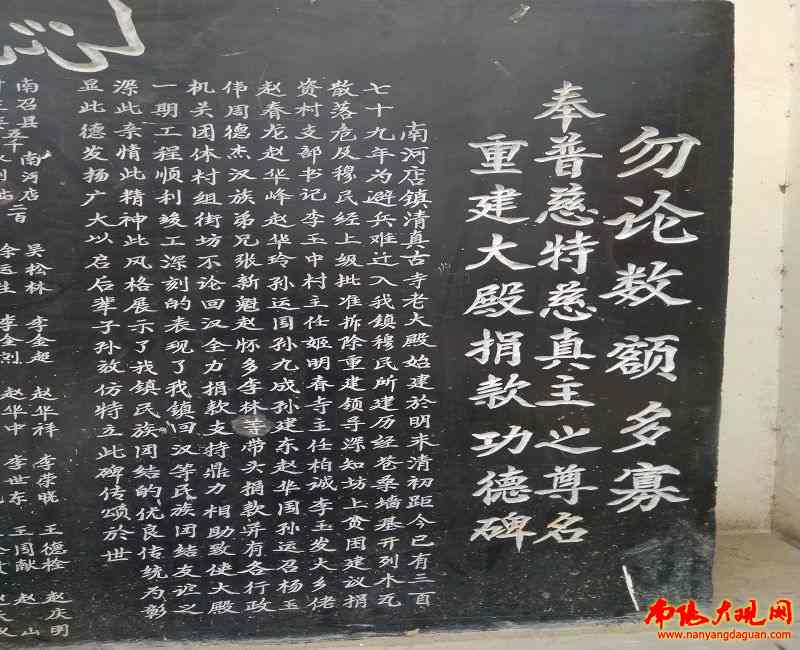 勿论数额多寡
奉普慈特慈真主之尊名
重建大殿捐款功德碑
南河店镇清真古寺老大殿始建於明末清初距今已有三百
七十九年为避兵难迁入我镇穆民所建历经苍桑墙基开列木瓦
散落危及穆民经上级批准拆除重建领导深知坊上贫困建议捐
资村支部书记李玉中村主任姬明春寺主任柏诚李玉发大乡佬
赵春龙赵华峰赵华玲孙运国孙九成孙建东赵华国孙运召杨玉
伟周德杰汉族弟兄张新魁赵怀多李林等带头捐款并有各行政
机关团体村组街坊不论回汉全力捐款支持鼎力相助致使大殿
一期工程顺利竣工深刻的表现了我镇回汉等民族团结友谊之
深此亲情此精神此风格展示了我镇民族团结的优良传统为彰
显此德发扬广大以启后辈子孙效仿特立此碑传颂於世
南召县 南河店 吴松林 李金超 赵华祥 李荣晓 王德栓 赵庆明
五千 二百 余运生 赵华中 李世东 王国献 赵 山
南阳大观网
www.nanyangdaguan.com